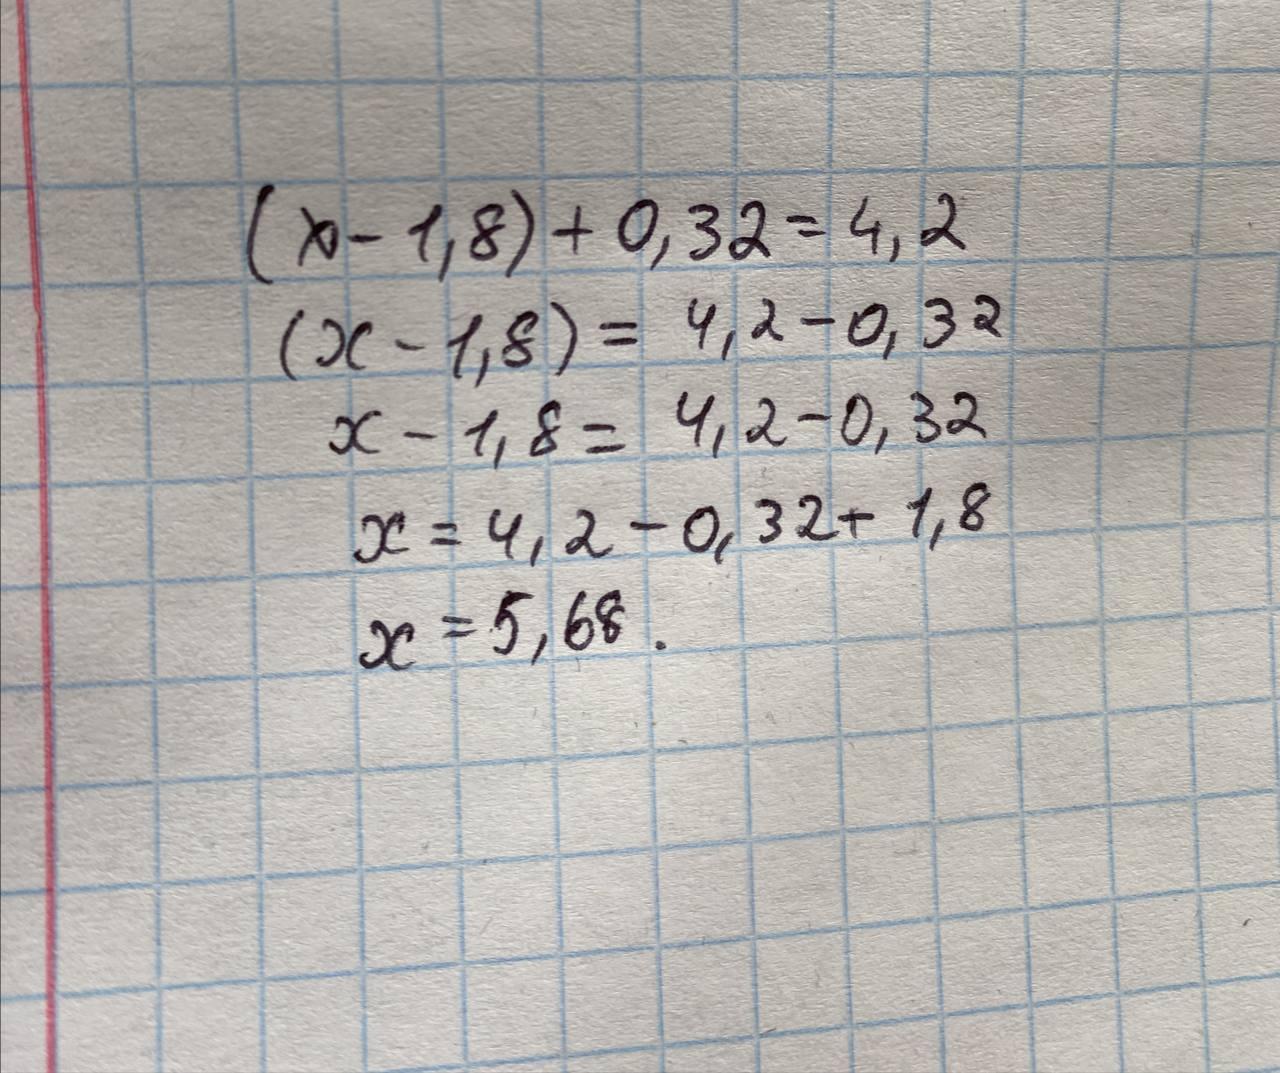 (x - 1,8) + 0,32 = 4,2
(x - 1,8) = 4,2 - 0,32
x - 1,8 = 4,2 - 0,32
x = 4,2 - 0,32 + 1,8
x = 5,68.